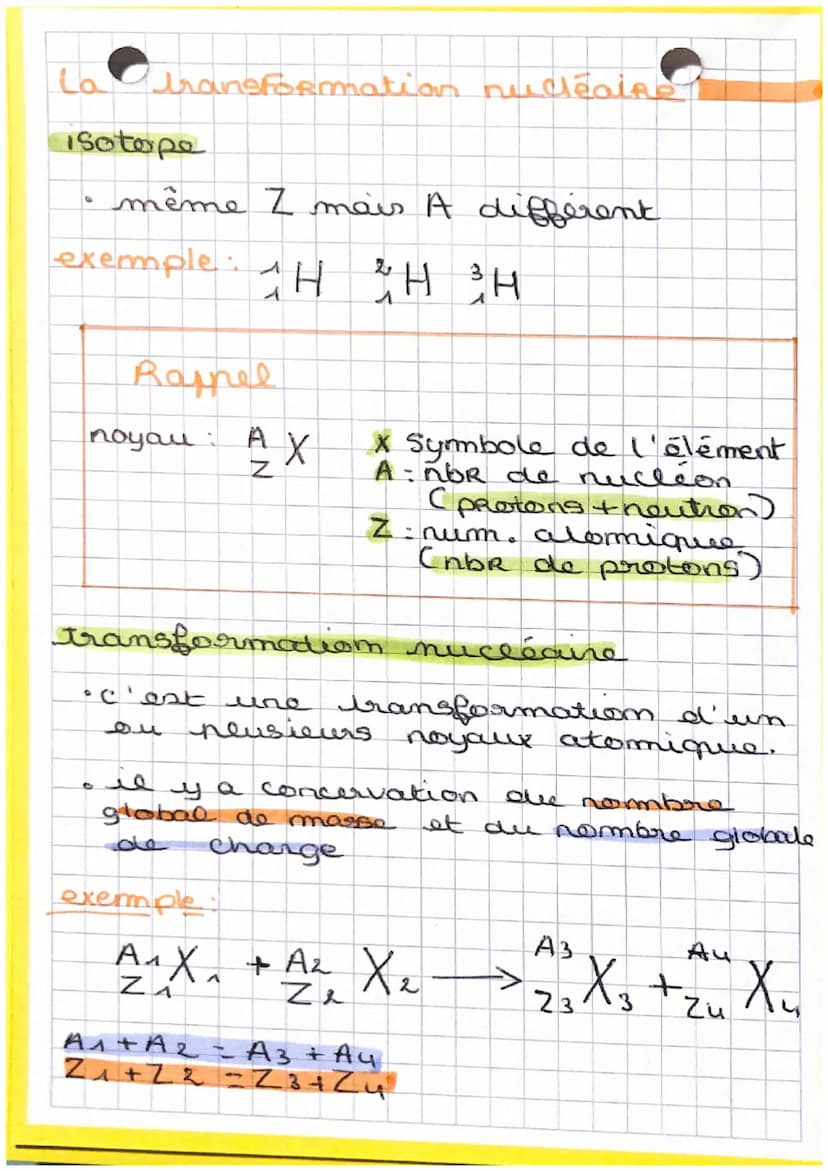 La transformation nucléaire
isotope
• même Z mais A différent
exemple : ¹₁H ²₁H ³₁H
Rappel
noyau : ᴬ_Z X
X symbole de l'élément
A : nbR de nucléon
(protons + neutron)
Z : num. atomique
(nbR de protons)
transformation nucléaire
• c'est une transformation d'un
ou plusieurs noyaux atomique.
• il y a concervation du nombre
global de masse et du nombre globale
de charge
exemple :
ᴬ¹_Z1 X₁ + ᴬ²_Z2 X₂ → ᴬ³_Z3 X₃ + ᴬ⁴_Z4 X₄
A1 + A2 = A3 + A4
Z1 + Z2 = Z3 + Z4